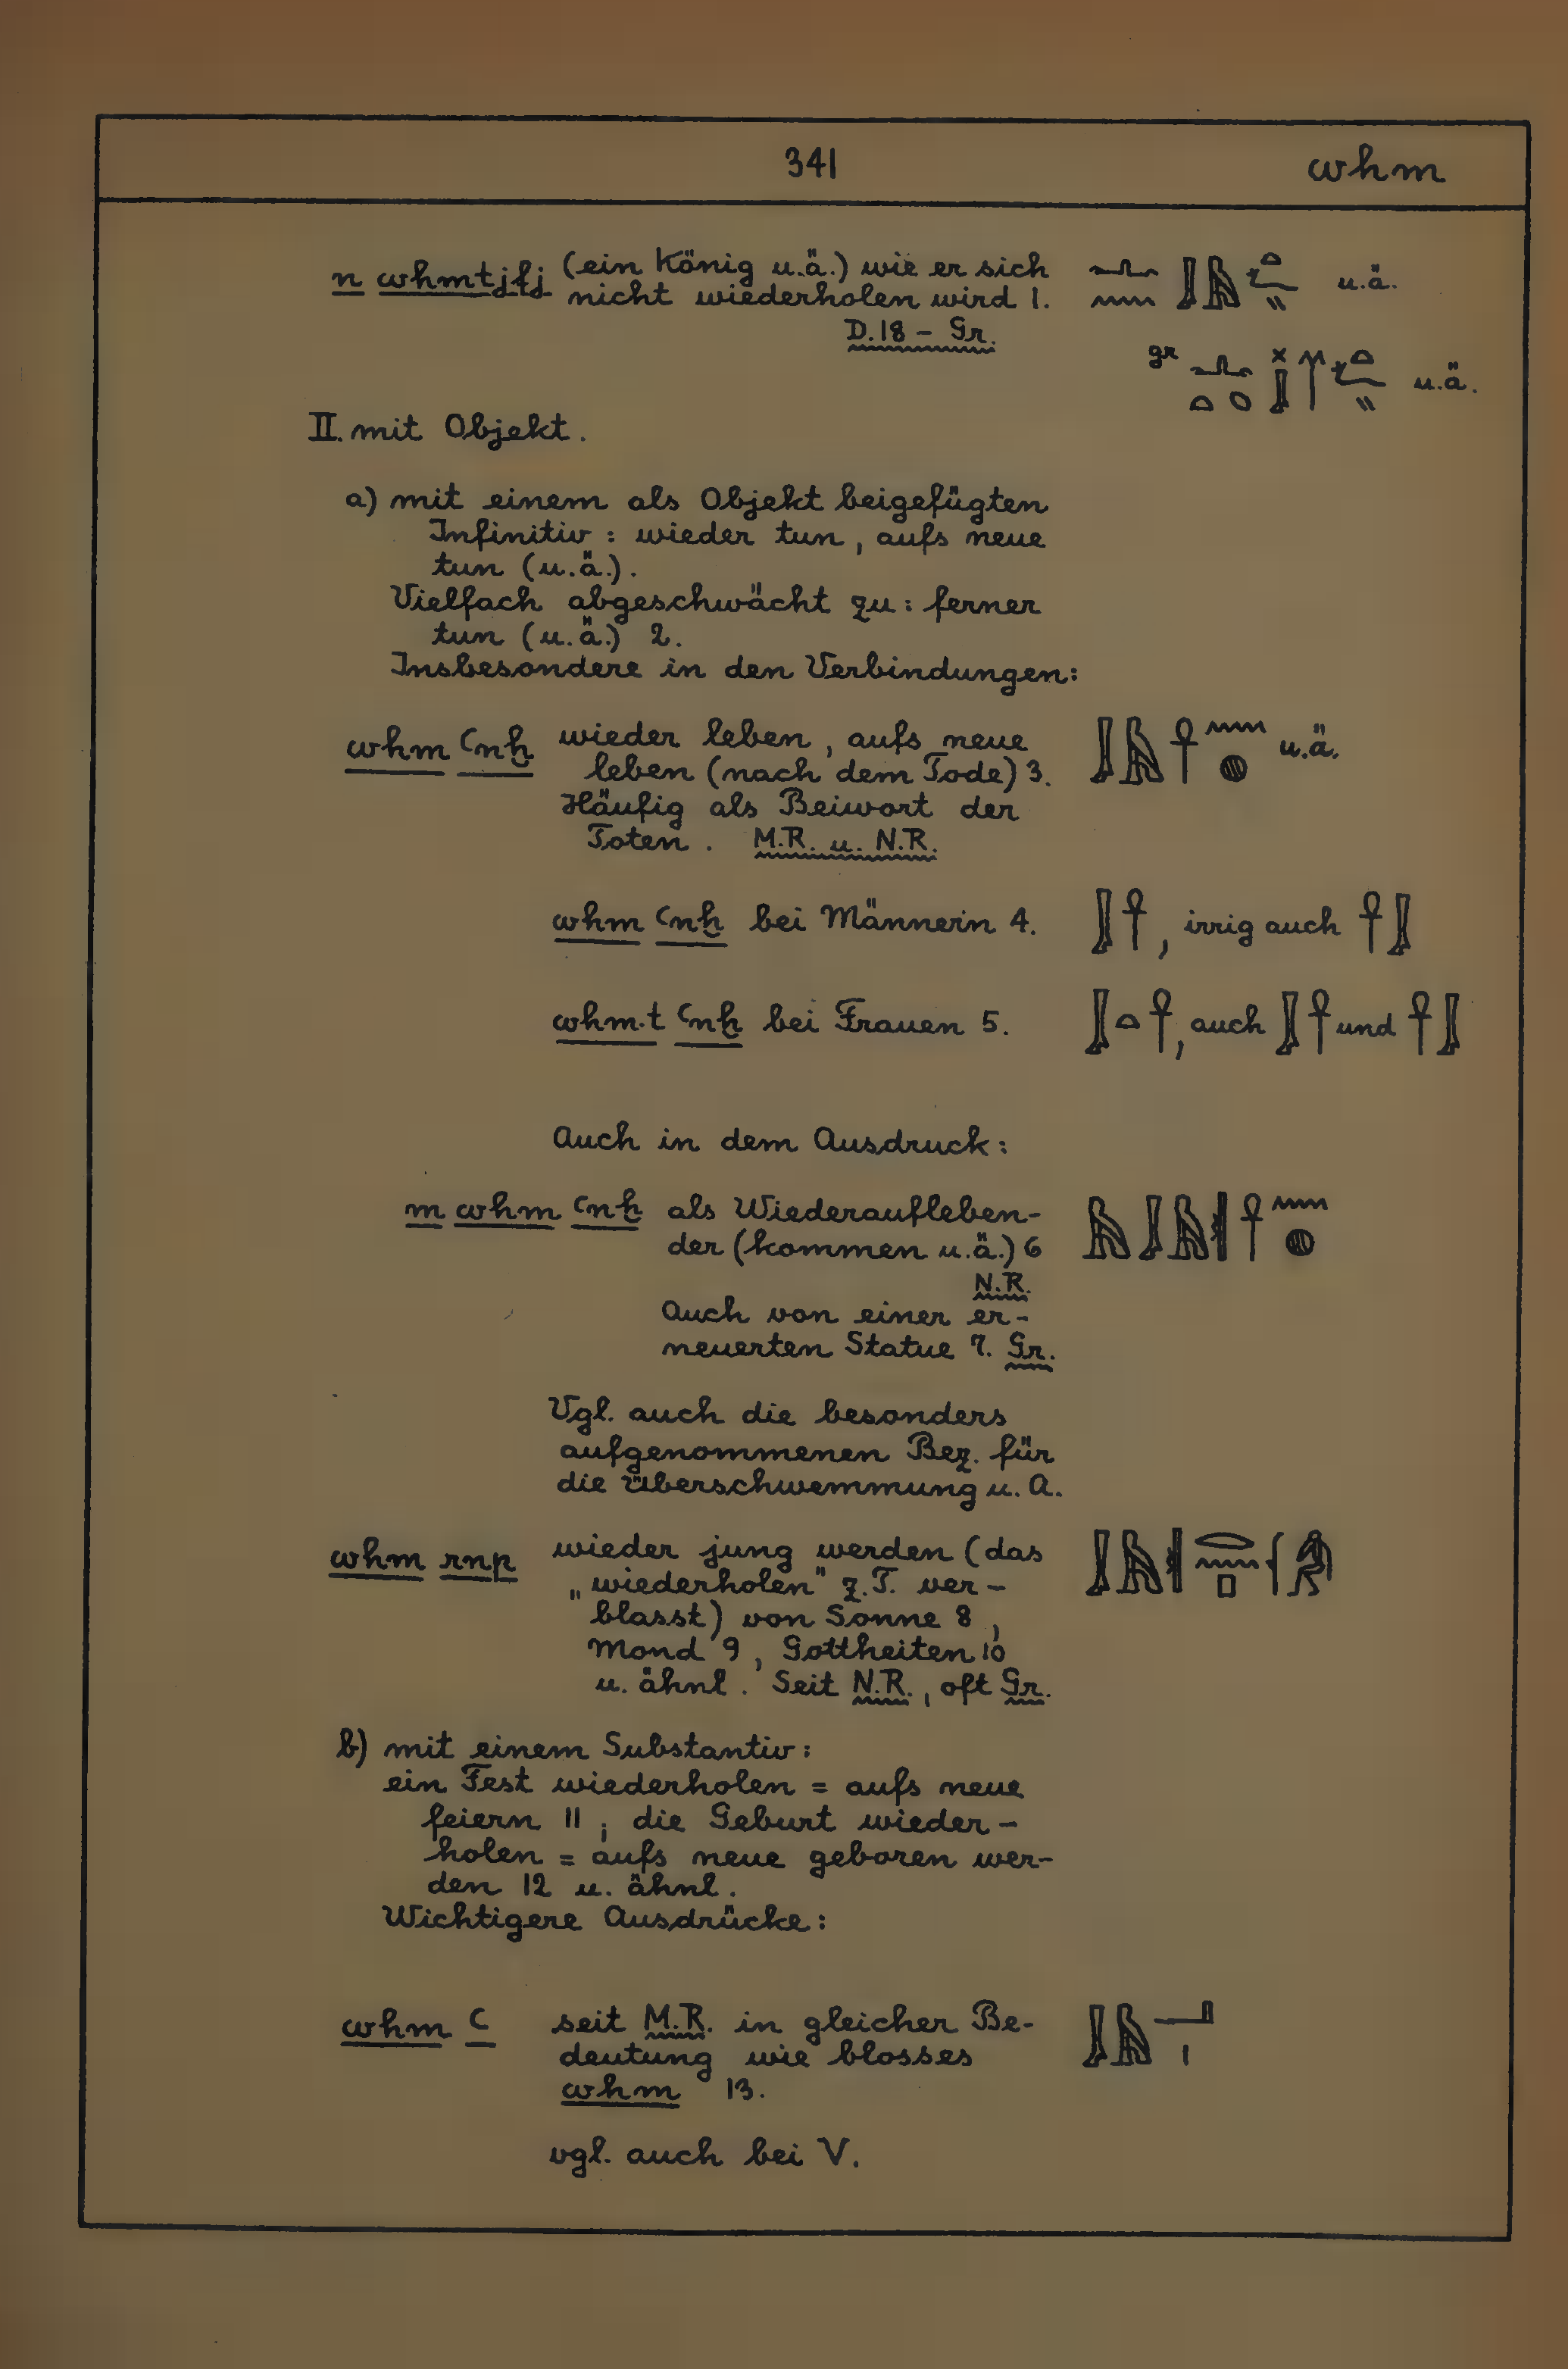 341 whm
n whmtjfj (ein König u.ä.) wie er sich
nicht wiederholen wird 1. u.ä.
D.18 – Gr.
gr u.ä.
II. mit Objekt.
a) mit einem als Objekt beigefügten
Infinitiv : wieder tun, aufs neue
tun (u.ä.).
Vielfach abgeschwächt zu : ferner
tun (u.ä.) 2.
Insbesondere in den Verbindungen:
whm ꜥnḫ wieder leben, aufs neue
leben (nach dem Tode) 3. u.ä.
Häufig als Beiwort der
Toten. M.R. u. N.R.
whm ꜥnḫ bei Männern 4. , irrig auch
whm.t ꜥnḫ bei Frauen 5. , auch und
Auch in dem Ausdruck:
m whm ꜥnḫ als Wiederaufleben-
der (kommen u.ä.) 6
N.R.
Auch von einer er-
neuerten Statue 7. Gr.
Vgl. auch die besonders
aufgenommenen Bez. für
die Überschwemmung u. A.
whm rnp wieder jung werden (das
„wiederholen" z.T. ver-
blasst) von Sonne 8,
Mond 9, Gottheiten 10
u. ähnl. Seit N.R., oft Gr.
b) mit einem Substantiv:
ein Fest wiederholen = aufs neue
feiern 11; die Geburt wieder-
holen = aufs neue geboren wer-
den 12 u. ähnl.
Wichtigere Ausdrücke:
whm ꜥ seit M.R. in gleicher Be-
deutung wie blosses
whm 13.
vgl. auch bei V.